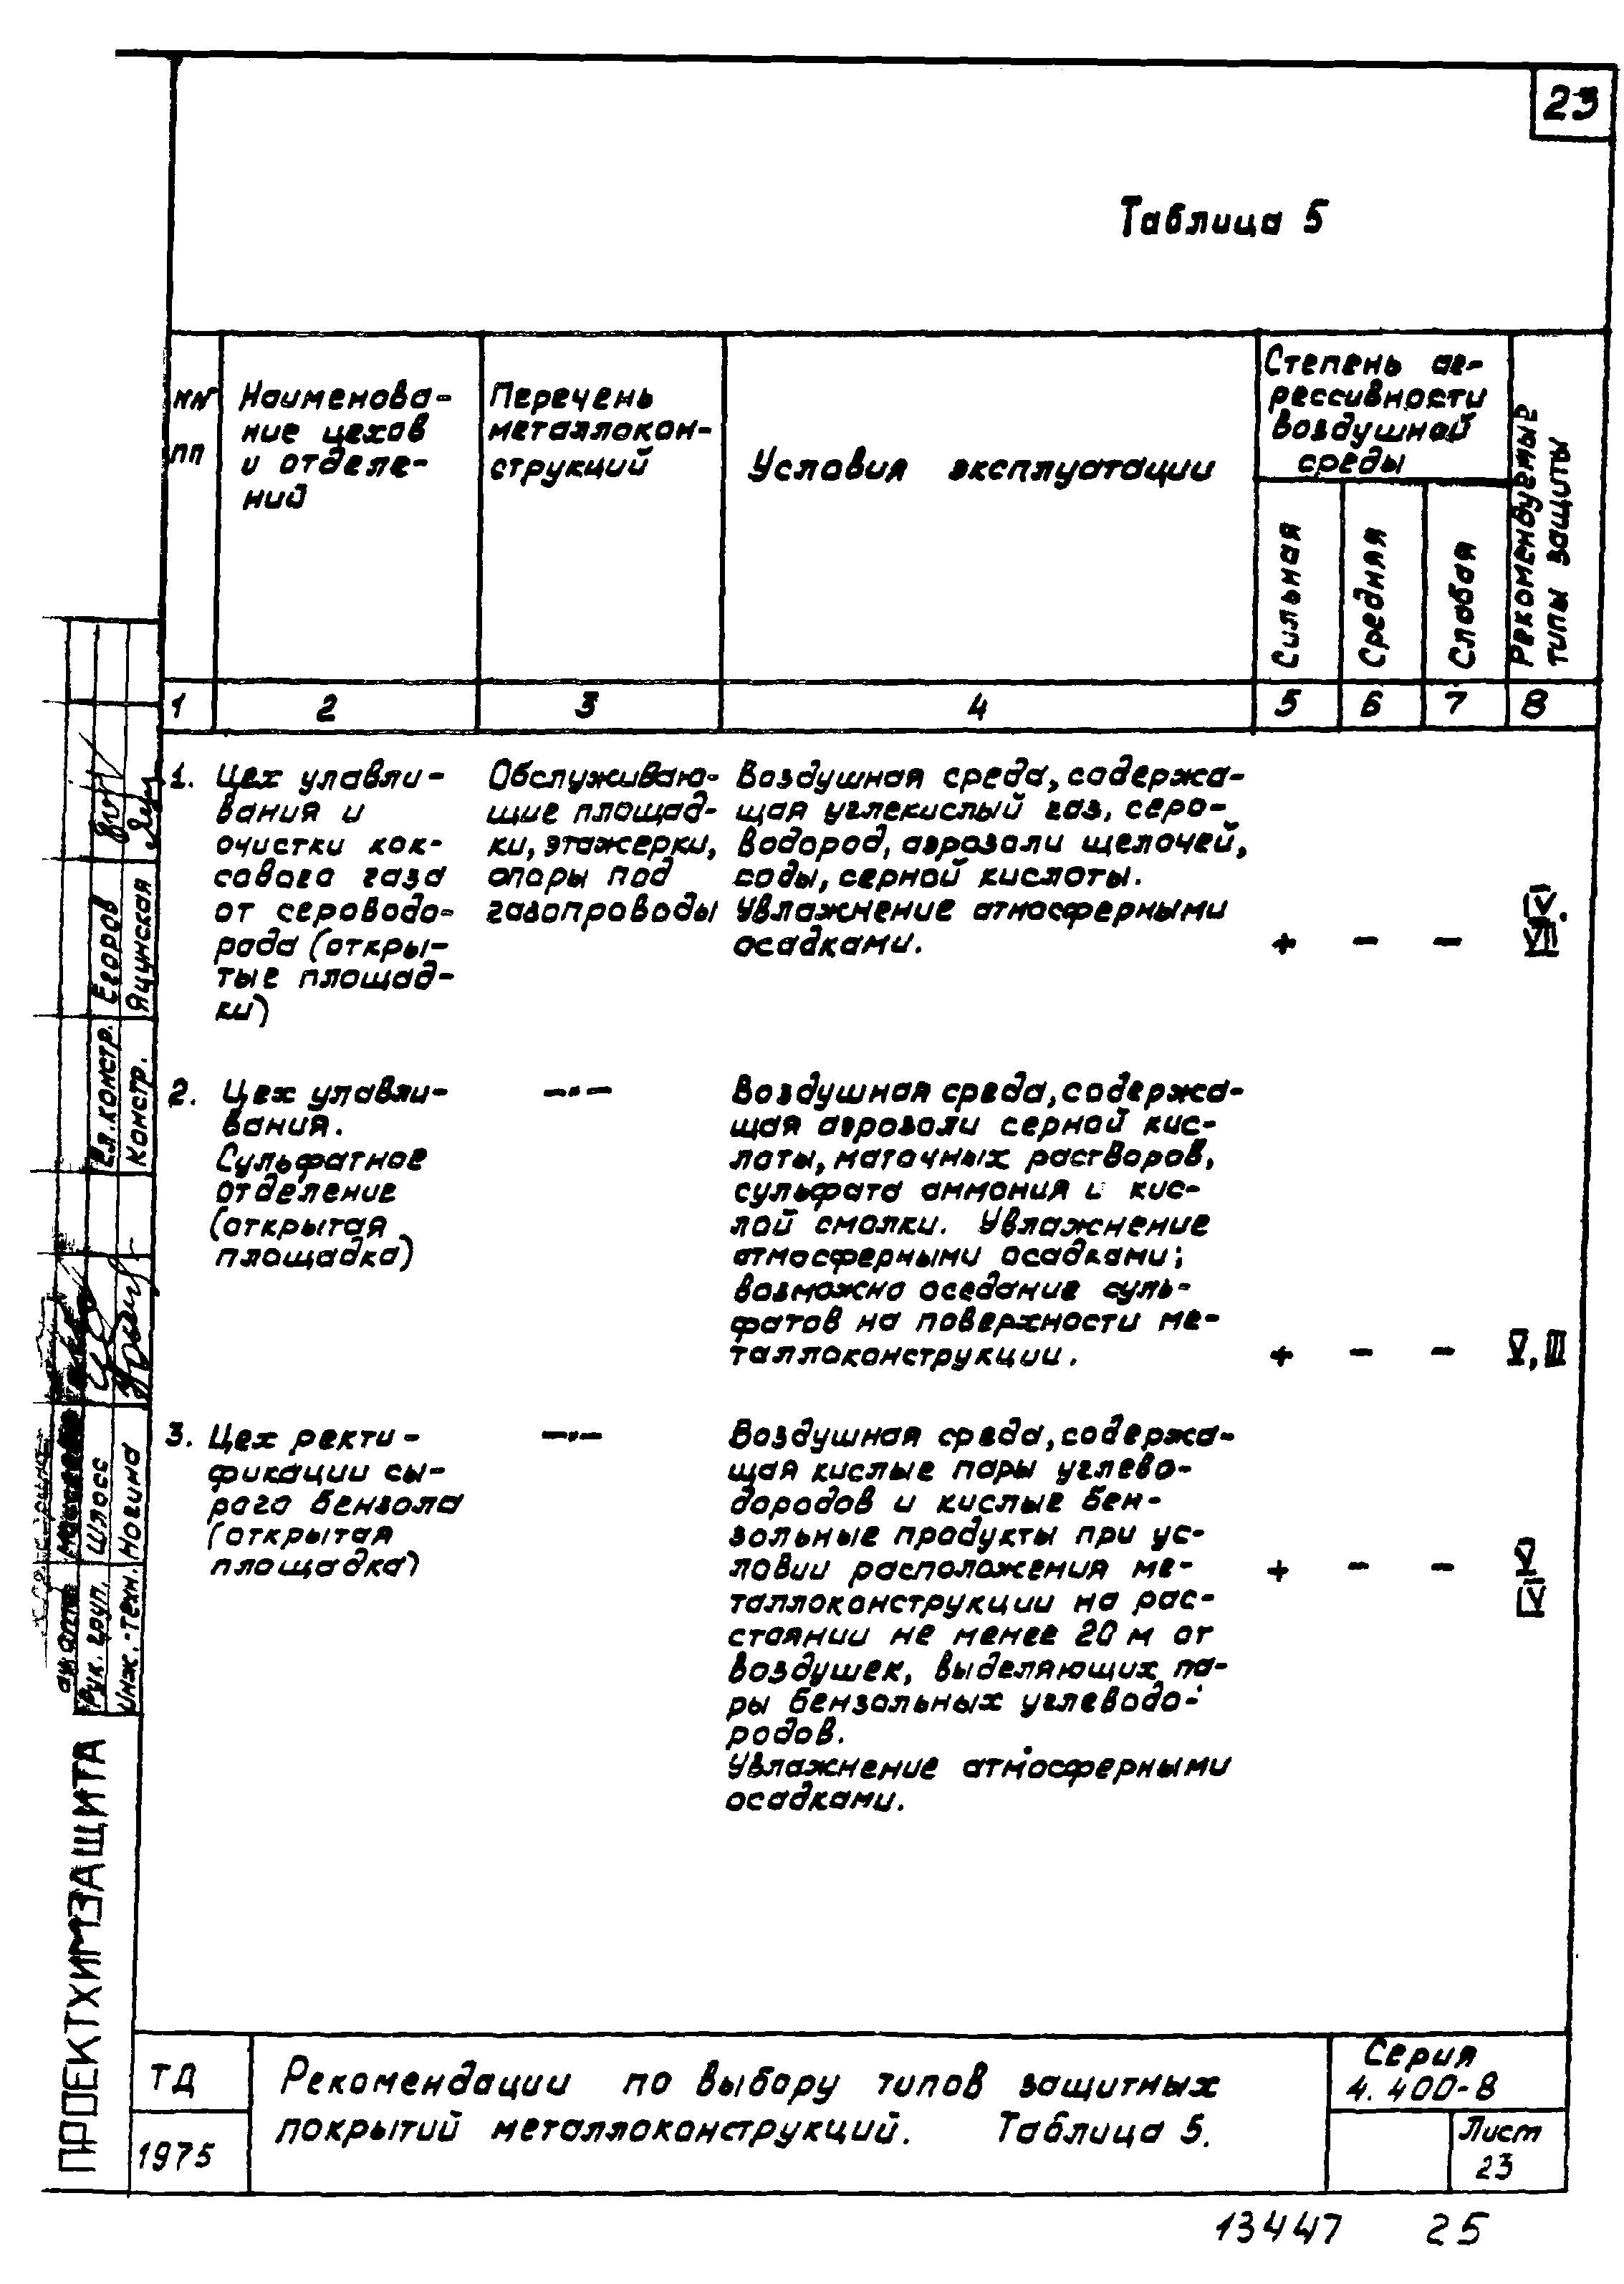 23
Таблица 5
NN
пп
Наименова-
ние цехов
и отделе-
ний
Перечень
металлокон-
струкций
Условия эксплуатации
Степень аг-
рессивности
воздушной
среды
Сильная
Средняя
Слабая
Рекомендуемые
типы защиты
1 2 3 4 5 6 7 8
1. Цех улавли-
вания и
очистки кок-
сового газа
от сероводо-
рода (откры-
тые площад-
ки)
Обслуживаю-
щие площад-
ки, этажерки,
опоры под
газопроводы
Воздушная среда, содержа-
щая углекислый газ, серо-
водород, аэрозоли щелочей,
соды, серной кислоты.
Увлажнение атмосферными
осадками.
+ - -
IV.
VII
2. Цех улавли-
вания.
Сульфатное
отделение
(открытая
площадка)
—·—
Воздушная среда, содержа-
щая аэрозоли серной кис-
лоты, маточных растворов,
сульфата аммония и кис-
лой смолки. Увлажнение
атмосферными осадками;
возможно оседание суль-
фатов на поверхности ме-
таллоконструкции.
+ - -
V, III
3. Цех ректи-
фикации сы-
рого бензола
(открытая
площадка)
—·—
Воздушная среда, содержа-
щая кислые пары углево-
дородов и кислые бен-
зольные продукты при ус-
ловии расположения ме-
таллоконструкции на рас-
стоянии не менее 20 м от
воздушек, выделяющих па-
ры бензольных углеводо-
родов.
Увлажнение атмосферными
осадками.
+ - -
V
IV
Гл. констр. Егоров
Констр. Яцунская
Рук. груп. Шлосс
Инж.-техн. Ногина
ПРОЕКТХИМЗАЩИТА
ТД
1975
Рекомендации по выбору типов защитных
покрытий металлоконструкций. Таблица 5.
Серия
4.400-8
Лист
23
13447 25